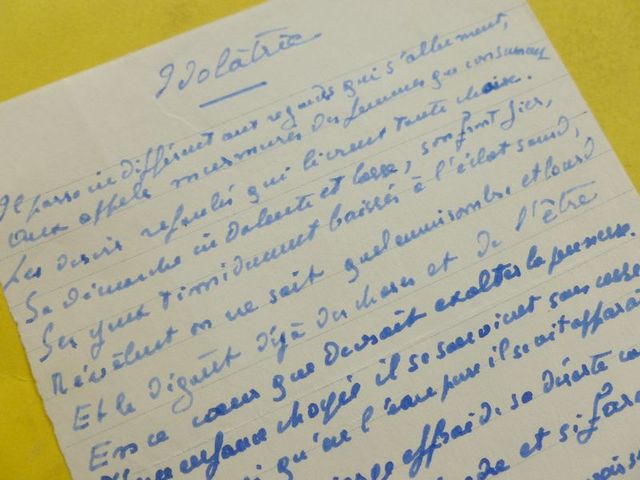 Idolâtrie
Il passe indifférent aux regards qui s'allument,
Aux appels murmurés des femmes que consument
Les désirs refoulés qui livrent toute chair.
Sa démarche indolente et lasse, son front fier,
Ses yeux timidement baissés à l'éclat sourd,
Révèlent on ne sait quel ennui sombre et lourd
Et le dégoût déjà des choses et de l'être
En ce cœur que devrait exalter la jeunesse.
D'une enfance il se souvient sans cesse
qu'en l'eau pure il se vit
effroi, sa
et si